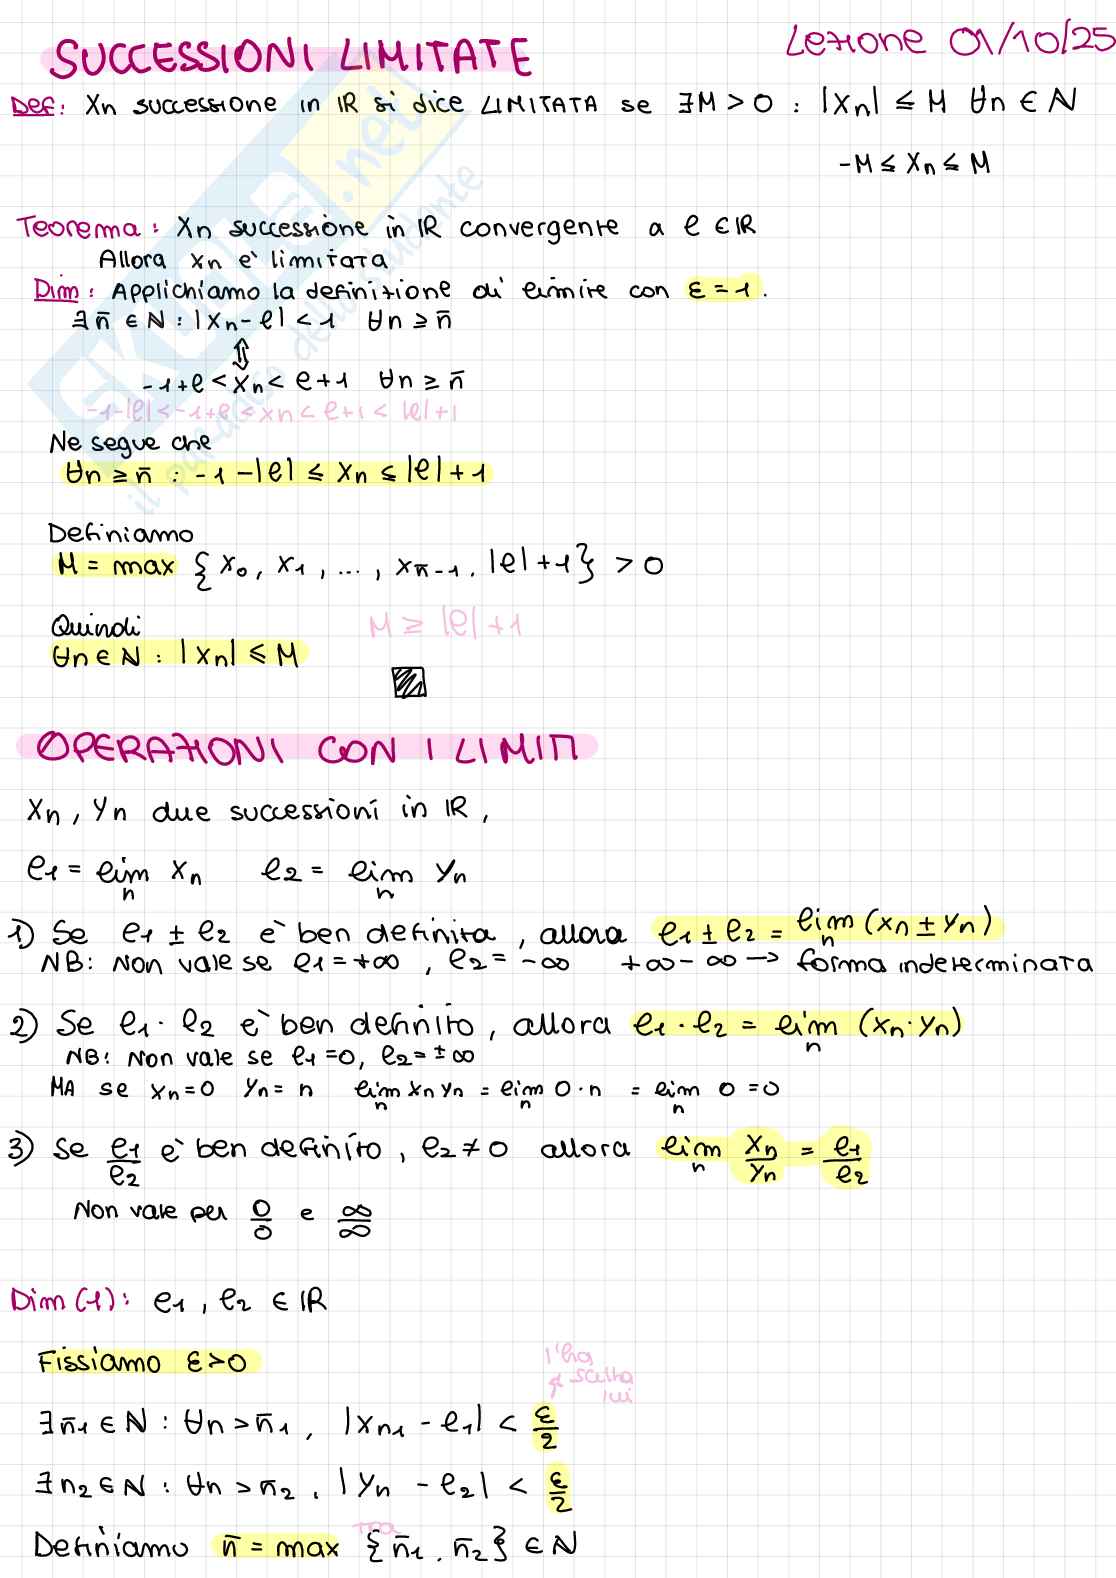 SUCCESSIONI LIMITATE
Lezione 01/10/25
Def: Xn successione in IR si dice LIMITATA se ∃M > 0 : |Xn| ≤ M ∀n ∈ N
-M ≤ Xn ≤ M
Teorema: Xn successione in IR convergente a l ∈ IR
Allora Xn è limitata
Dim: Applichiamo la definizione di limite con ε = 1.
∃ n̄ ∈ N : |Xn - l| < 1 ∀n ≥ n̄
⇕
-1+l < Xn < l+1 ∀n ≥ n̄
-1-|l| < -1+l < xn < l+1 < |l|+1
Ne segue che
∀n ≥ n̄ : -1-|l| ≤ Xn ≤ |l|+1
Definiamo
M = max { X0, X1, ..., Xn̄-1, |l|+1 } > 0
Quindi
M ≥ |l|+1
∀n ∈ N : |Xn| ≤ M
OPERAZIONI CON I LIMITI
Xn, Yn due successioni in IR,
l1 = lim n Xn l2 = lim n Yn
1) Se l1 ± l2 è ben definita, allora l1 ± l2 = lim n (Xn ± Yn)
NB: Non vale se l1 = +∞, l2 = -∞ +∞ - ∞ → forma indeterminata
2) Se l1 · l2 è ben definito, allora l1 · l2 = lim n (Xn · Yn)
NB: Non vale se l1 = 0, l2 = ±∞
MA se Xn = 0 Yn = n lim n Xn Yn = lim n 0 · n = lim n 0 = 0
3) Se l1/l2 è ben definito, l2 ≠ 0 allora lim n Xn/Yn = l1/l2
Non vale per 0/0 e ∞/∞
Dim (1): l1, l2 ∈ IR
Fissiamo ε > 0
l'ha
scelta
lui
∃ n̄1 ∈ N : ∀n > n̄1, |Xn1 - l1| < ε/2
∃ n2 ∈ N : ∀n > n̄2, |Yn - l2| < ε/2
tra
Definiamo n̄ = max { n̄1, n̄2 } ∈ N
SKUOLA.net
il paradiso dello studente